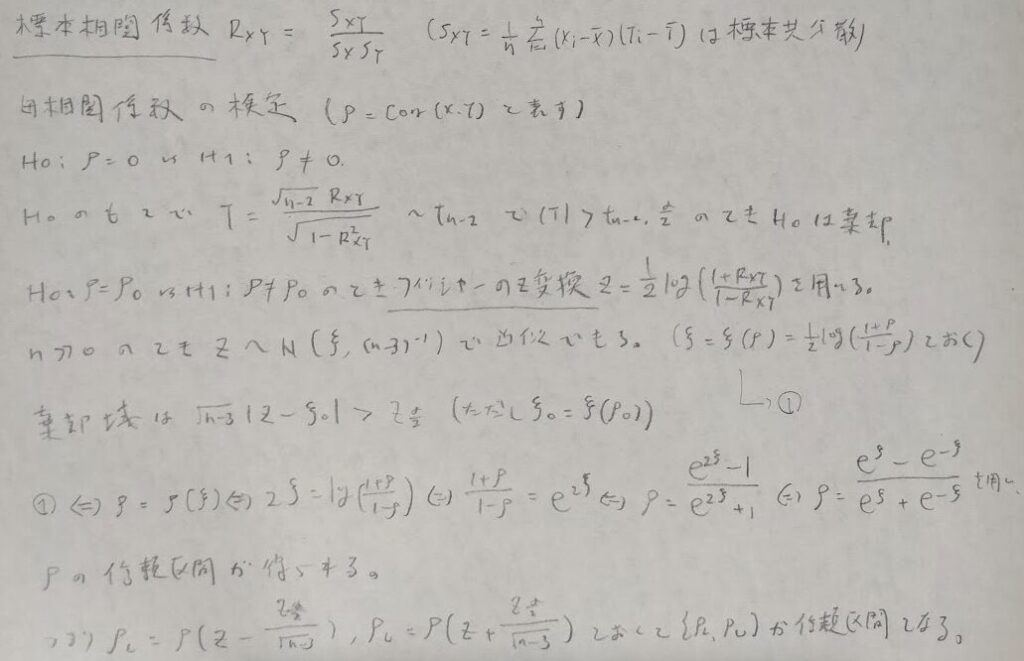 標本相関係数 R_XY = S_XY / S_X S_Y (S_XY = 1/n Σ_{i=1}^n (X_i − X̄)(Y_i − Ȳ) は標本共分散)
母相関係数の検定 (ρ = Corr(X.Y) と表す)
H0: ρ = 0 vs H1: ρ ≠ 0.
H0のもとで T = √(n-2) R_XY / √(1 − R²_XY) ~ t_{n-2} で |T| > t_{n-2, α/2} のとき H0は棄却.
H0: ρ = ρ0 vs H1: ρ ≠ ρ0 のとき フィッシャーのZ変換 Z = 1/2 log((1+R_XY)/(1−R_XY)) を用いる。
n ≫ 0 のとき Z ~ N(ξ, (n-3)⁻¹) で近似できる。 (ξ = ξ(ρ) = 1/2 log((1+ρ)/(1−ρ)) とおく)
↳ ①
棄却域は √(n-3) |Z − ξ0| > Z_{α/2} (ただし ξ0 = ξ(ρ0))
① ⇔ ρ = ρ(ξ) ⇔ 2ξ = log((1+ρ)/(1−ρ)) ⇔ (1+ρ)/(1−ρ) = e^{2ξ} ⇔ ρ = (e^{2ξ} − 1)/(e^{2ξ} + 1) ⇔ ρ = (e^ξ − e^{−ξ})/(e^ξ + e^{−ξ}) を用い、
ρの信頼区間が得られる。
つまり ρ_L = ρ(Z − Z_{α/2}/√(n-3)), ρ_U = ρ(Z + Z_{α/2}/√(n-3)) とおくと {ρ_L, ρ_U} が信頼区間となる。